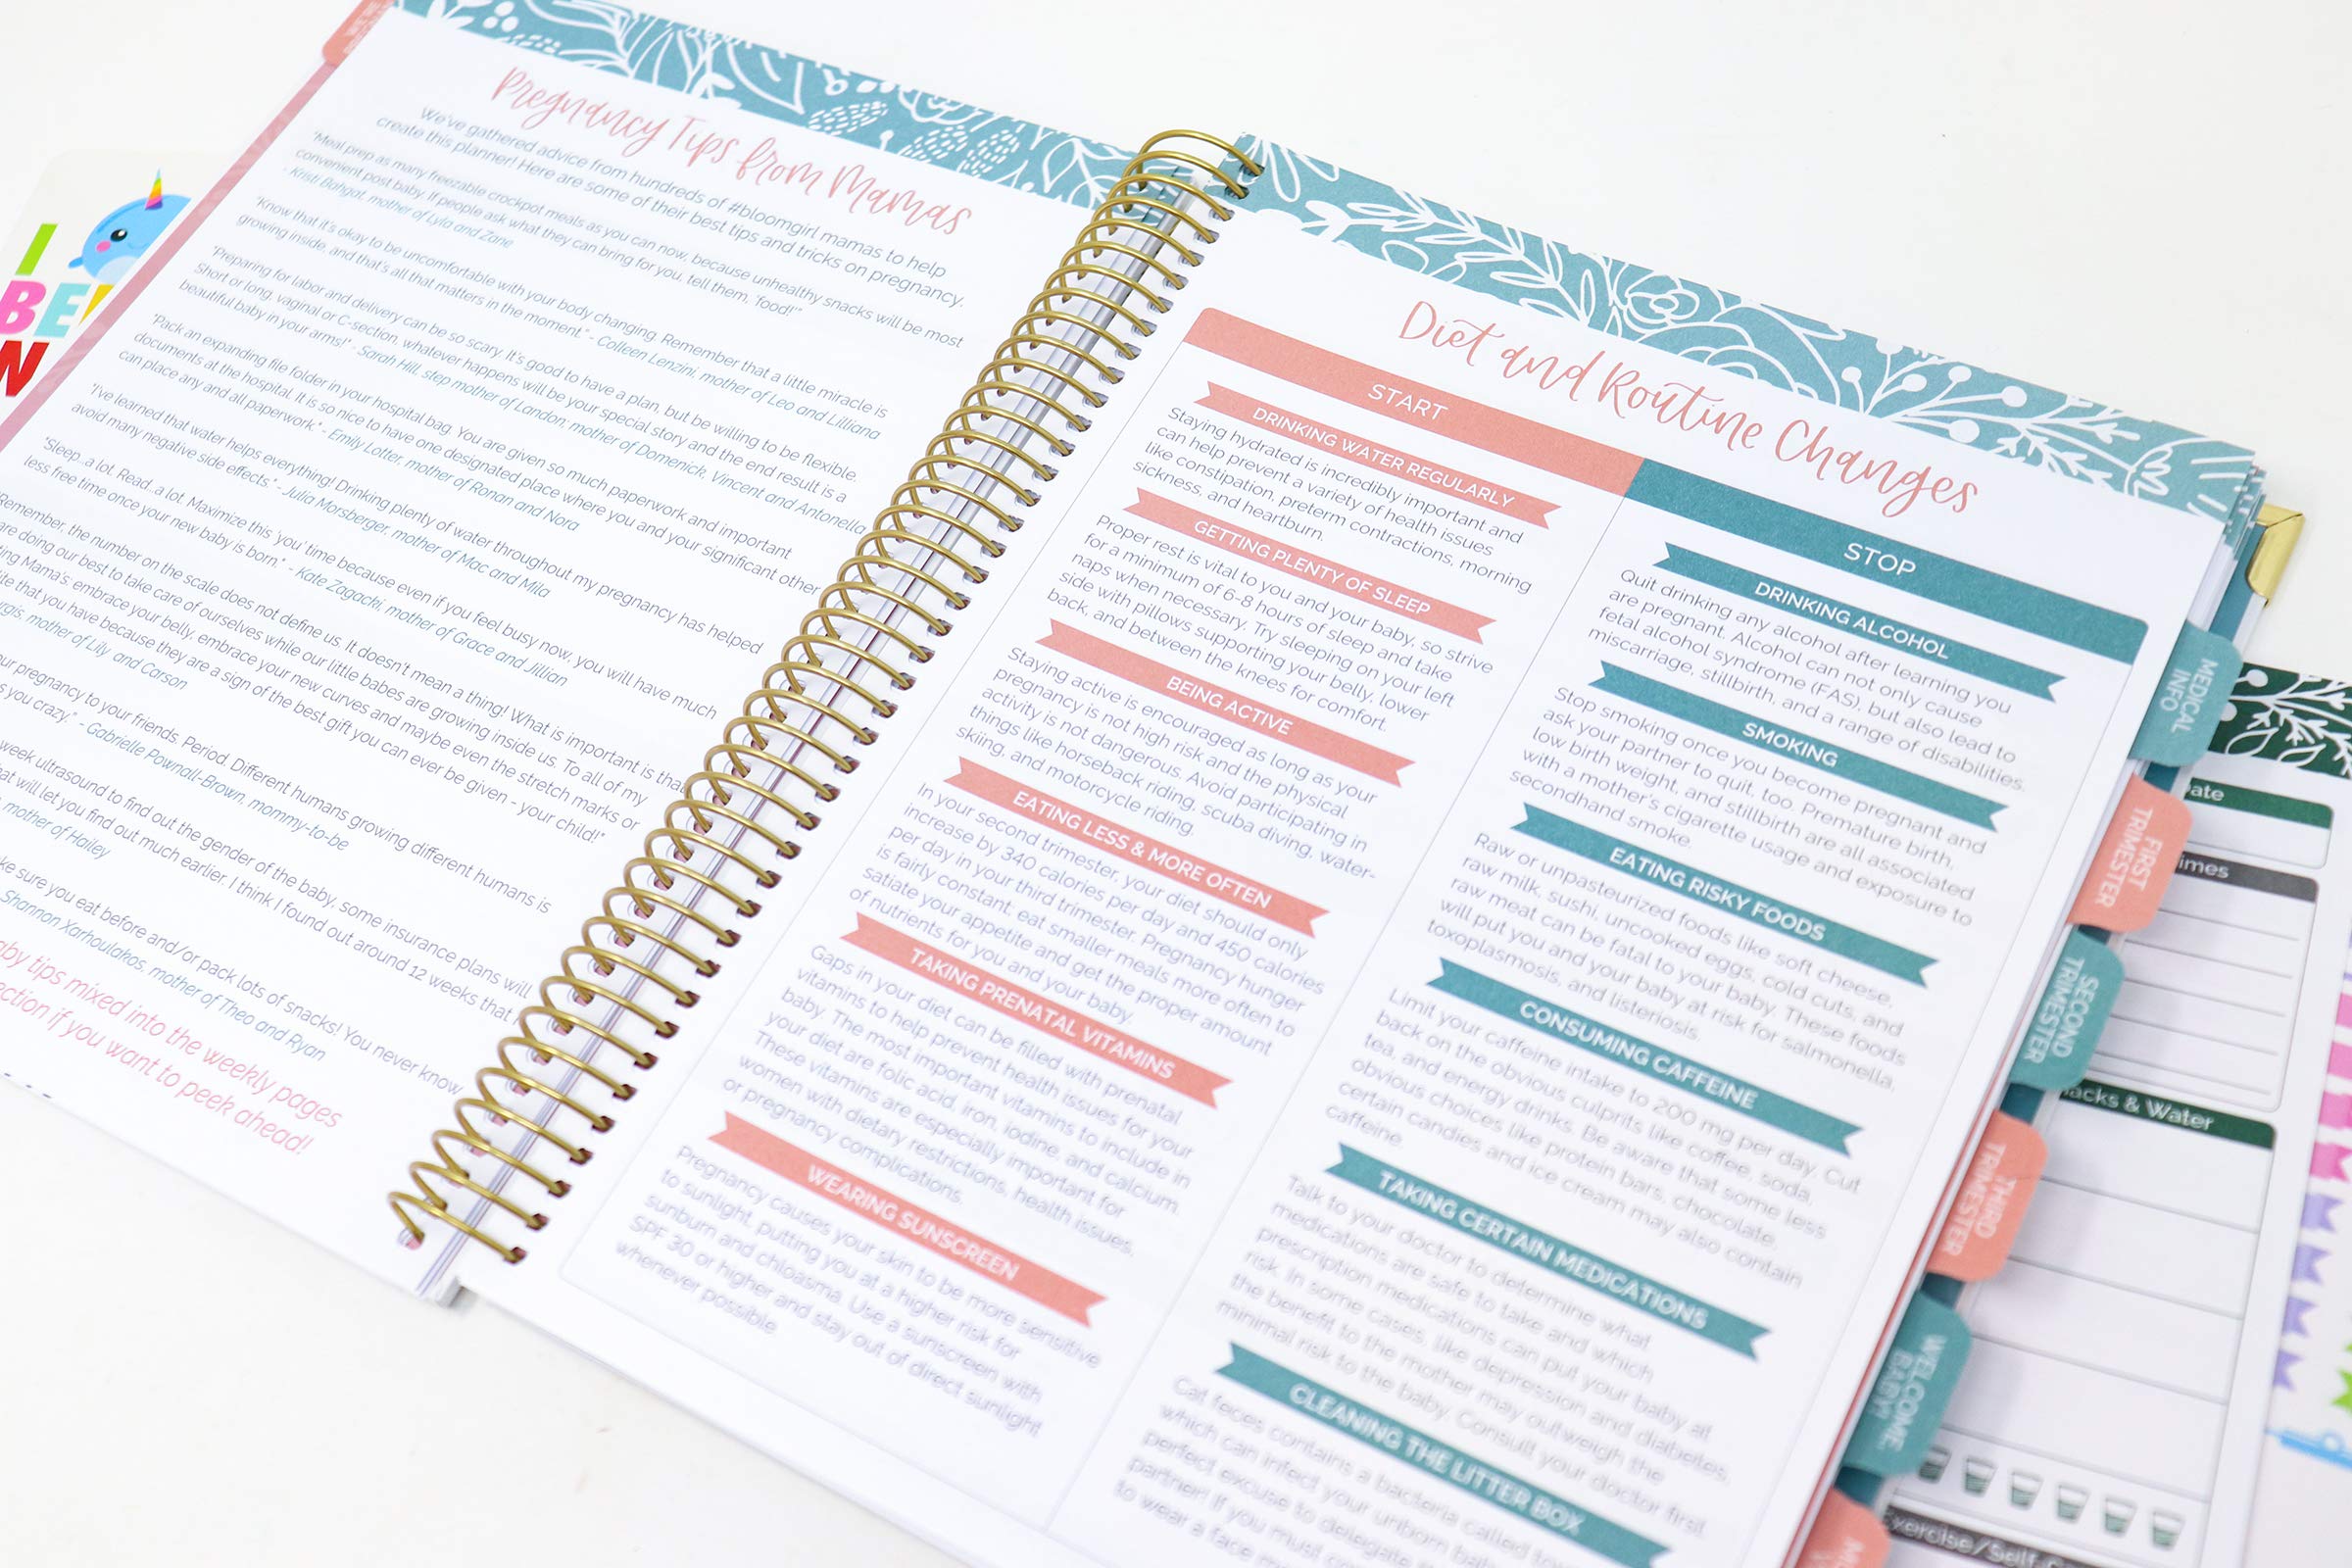 I
BE
N
Pregnancy Tips from Mamas
We've gathered advice from hundreds of #bloomgirl mamas to help
create this planner! Here are some of their best tips and tricks on pregnancy.
"Meal prep as many freezable crockpot meals as you can now, because unhealthy snacks will be most
convenient post baby. If people ask what they can bring for you, tell them, 'food!'"
- Kristi Bahgat, mother of Lyla and Zane
"Know that it's okay to be uncomfortable with your body changing. Remember that a little miracle is
growing inside, and that's all that matters in the moment." - Colleen Lenzini, mother of Leo and Lilliana
"Preparing for labor and delivery can be so scary. It's good to have a plan, but be willing to be flexible.
Short or long, vaginal or C-section, whatever happens will be your special story and the end result is a
beautiful baby in your arms!" - Sarah Hill, step mother of Landon; mother of Domenick, Vincent and Antonella
"Pack an expanding file folder in your hospital bag. You are given so much paperwork and important
documents at the hospital. It is so nice to have one designated place where you and your significant other
can place any and all paperwork." - Emily Lotter, mother of Ronan and Nora
"I've learned that water helps everything! Drinking plenty of water throughout my pregnancy has helped
avoid many negative side effects." - Julia Morsberger, mother of Mac and Mila
"Sleep...a lot. Read...a lot. Maximize this 'you' time because even if you feel busy now, you will have much
less free time once your new baby is born." - Kate Zagacki, mother of Grace and Jillian
Remember, the number on the scale does not define us. It doesn't mean a thing! What is important is that
are doing our best to take care of ourselves while our little babes are growing inside us. To all of my
Mama's: embrace your belly, embrace your new curves and maybe even the stretch marks or
that you have because they are a sign of the best gift you can ever be given - your child!"
mother of Lily and Carson
your pregnancy to your friends. Period. Different humans growing different humans is
you crazy." - Gabrielle Pownall-Brown, mommy-to-be
week ultrasound to find out the gender of the baby, some insurance plans will
that will let you find out much earlier. I think I found out around 12 weeks that
mother of Hailey
sure you eat before and/or pack lots of snacks! You never know
Shannon Xarhoulakos, mother of Theo and Ryan
tips mixed into the weekly pages
if you want to peek ahead!
Diet and Routine Changes
START
DRINKING WATER REGULARLY
Staying hydrated is incredibly important and
can help prevent a variety of health issues
like constipation, preterm contractions, morning
sickness, and heartburn.
GETTING PLENTY OF SLEEP
Proper rest is vital to you and your baby, so strive
for a minimum of 6-8 hours of sleep and take
naps when necessary. Try sleeping on your left
side with pillows supporting your belly, lower
back, and between the knees for comfort.
BEING ACTIVE
Staying active is encouraged as long as your
pregnancy is not high risk and the physical
activity is not dangerous. Avoid participating in
things like horseback riding, scuba diving, water-
skiing, and motorcycle riding.
EATING LESS & MORE OFTEN
In your second trimester, your diet should only
increase by 340 calories per day and 450 calories
per day in your third trimester. Pregnancy hunger
is fairly constant, eat smaller meals more often to
satiate your appetite and get the proper amount
of nutrients for you and your baby.
TAKING PRENATAL VITAMINS
Gaps in your diet can be filled with prenatal
vitamins to help prevent health issues for your
baby. The most important vitamins to include in
your diet are folic acid, iron, iodine, and calcium.
These vitamins are especially important for
women with dietary restrictions, health issues,
or pregnancy complications.
WEARING SUNSCREEN
Pregnancy causes your skin to be more sensitive
to sunlight, putting you at a higher risk for
sunburn and chloasma. Use a sunscreen with
SPF 30 or higher and stay out of direct sunlight
whenever possible.
STOP
DRINKING ALCOHOL
Quit drinking any alcohol after learning you
are pregnant. Alcohol can not only cause
fetal alcohol syndrome (FAS), but also lead to
miscarriage, stillbirth, and a range of disabilities.
SMOKING
Stop smoking once you become pregnant and
ask your partner to quit, too. Premature birth,
low birth weight, and stillbirth are all associated
with a mother's cigarette usage and exposure to
secondhand smoke.
EATING RISKY FOODS
Raw or unpasteurized foods like soft cheese,
raw milk, sushi, uncooked eggs, cold cuts, and
raw meat can be fatal to your baby. These foods
will put you and your baby at risk for salmonella,
toxoplasmosis, and listeriosis.
CONSUMING CAFFEINE
Limit your caffeine intake to 200 mg per day. Cut
back on the obvious culprits like coffee, soda,
tea, and energy drinks. Be aware that some less
obvious choices like protein bars, chocolate,
certain candies and ice cream may also contain
caffeine.
TAKING CERTAIN MEDICATIONS
Talk to your doctor to determine what
medications are safe to take and which
prescription medications can put your baby at
risk. In some cases, like depression and diabetes,
the benefit to the mother may outweigh the
minimal risk to the baby. Consult your doctor first
CLEANING THE LITTER BOX
Cat feces contains a bacteria called
which can infect your unborn baby
perfect excuse to delegate
partner! If you must
to wear a face
MEDICAL
INFO
FIRST
TRIMESTER
SECOND
TRIMESTER
THIRD
TRIMESTER
WELCOME,
BABY!
ate
imes
acks & Water
Exercise/Self-